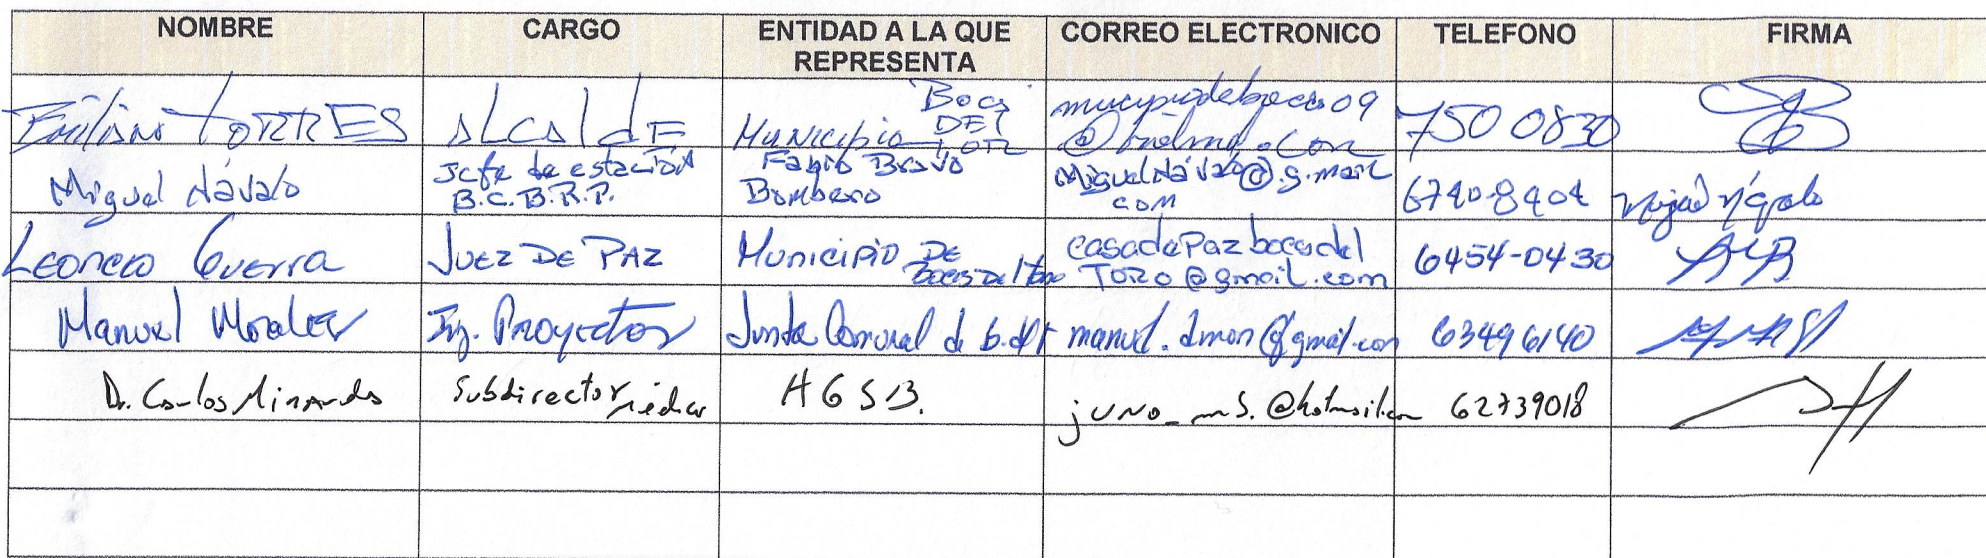 NOMBRE CARGO ENTIDAD A LA QUE REPRESENTA CORREO ELECTRONICO TELEFONO FIRMA
TORRES ALCALDE Municipio Bocas DEL 750 0830
Miguel Návalo Jefe de estación B.C.B.R.P. Fabio Bravo Bombero MiguelNávalo@.g.mail com 6740-8404
Leoncio Guerra JUEZ DE PAZ Municipio DE Bocas Del Toro casadePazbocasdel TORO@gmail.com 6454-0430
Manuel Morales Ing. Proyectos Junta Comunal de b.d/t manuel.dmon@gmail.com 63496140
Dr. Carlos Miranda Subdirector médico HGSB. juno_ms.@hotmail.com 62739018